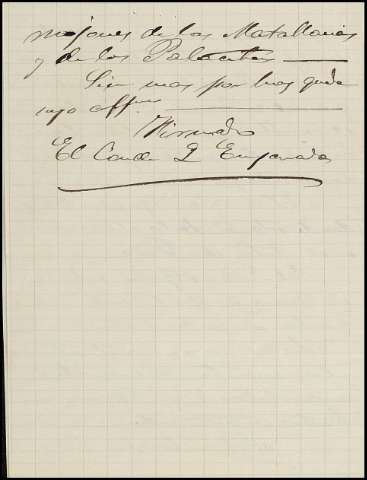 mejores de los Matallanas
y de los Palacios
Sin mas por hoy queda
suyo affmo
Firmado
El Conde D Ensenada